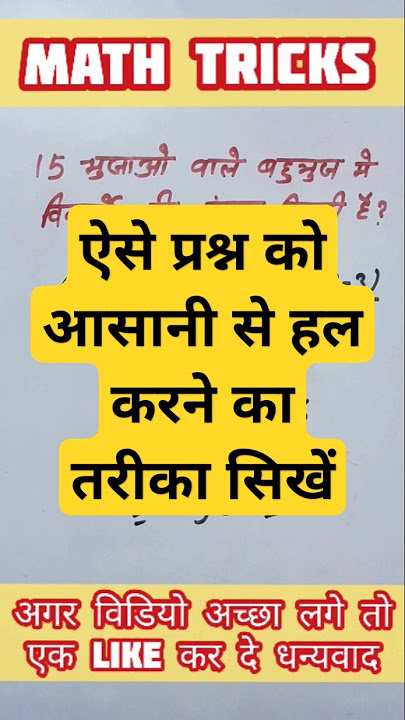 MATH TRICKS
15 भुजाओ वाले बहुभुज मे
है?
ऐसे प्रश्न को
आसानी से हल
करने का
तरीका सिखें
अगर विडियो अच्छा लगे तो
एक LIKE कर दे धन्यवाद